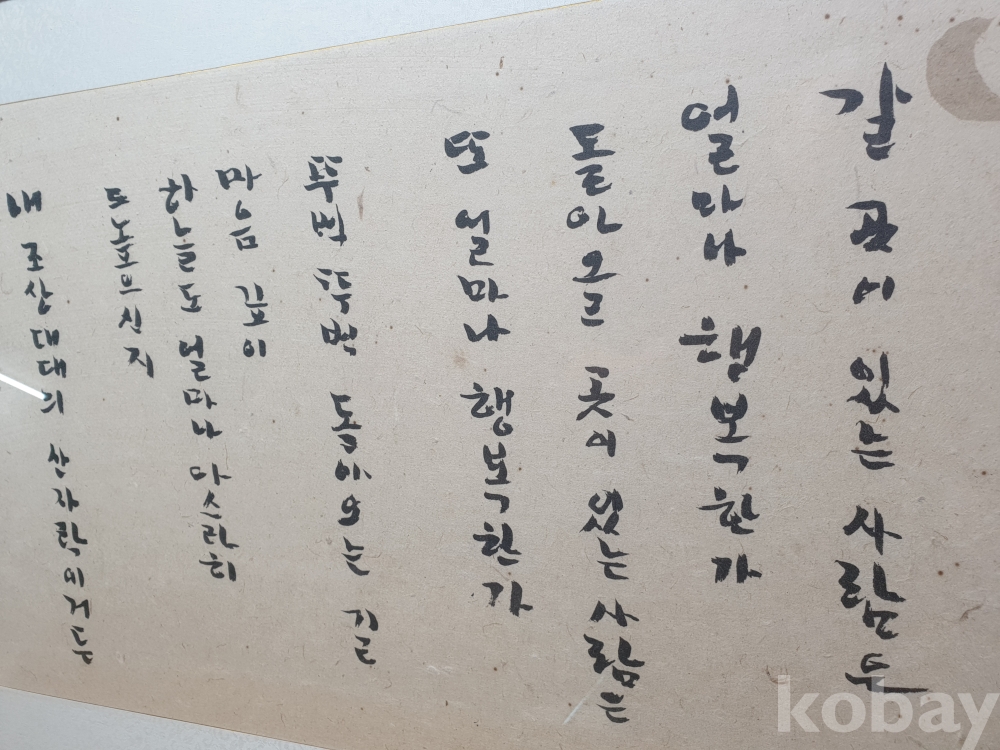 갈 곳이 있는 사람은
얼마나 행복한가
돌아올 곳이 있는 사람은
또 얼마나 행복한가
뚜벅 뚜벅 돌아오는 길
마음 깊이
하늘도 얼마나 아스라히
드높으신지
내 조상대대의 산자락이거든
kobay